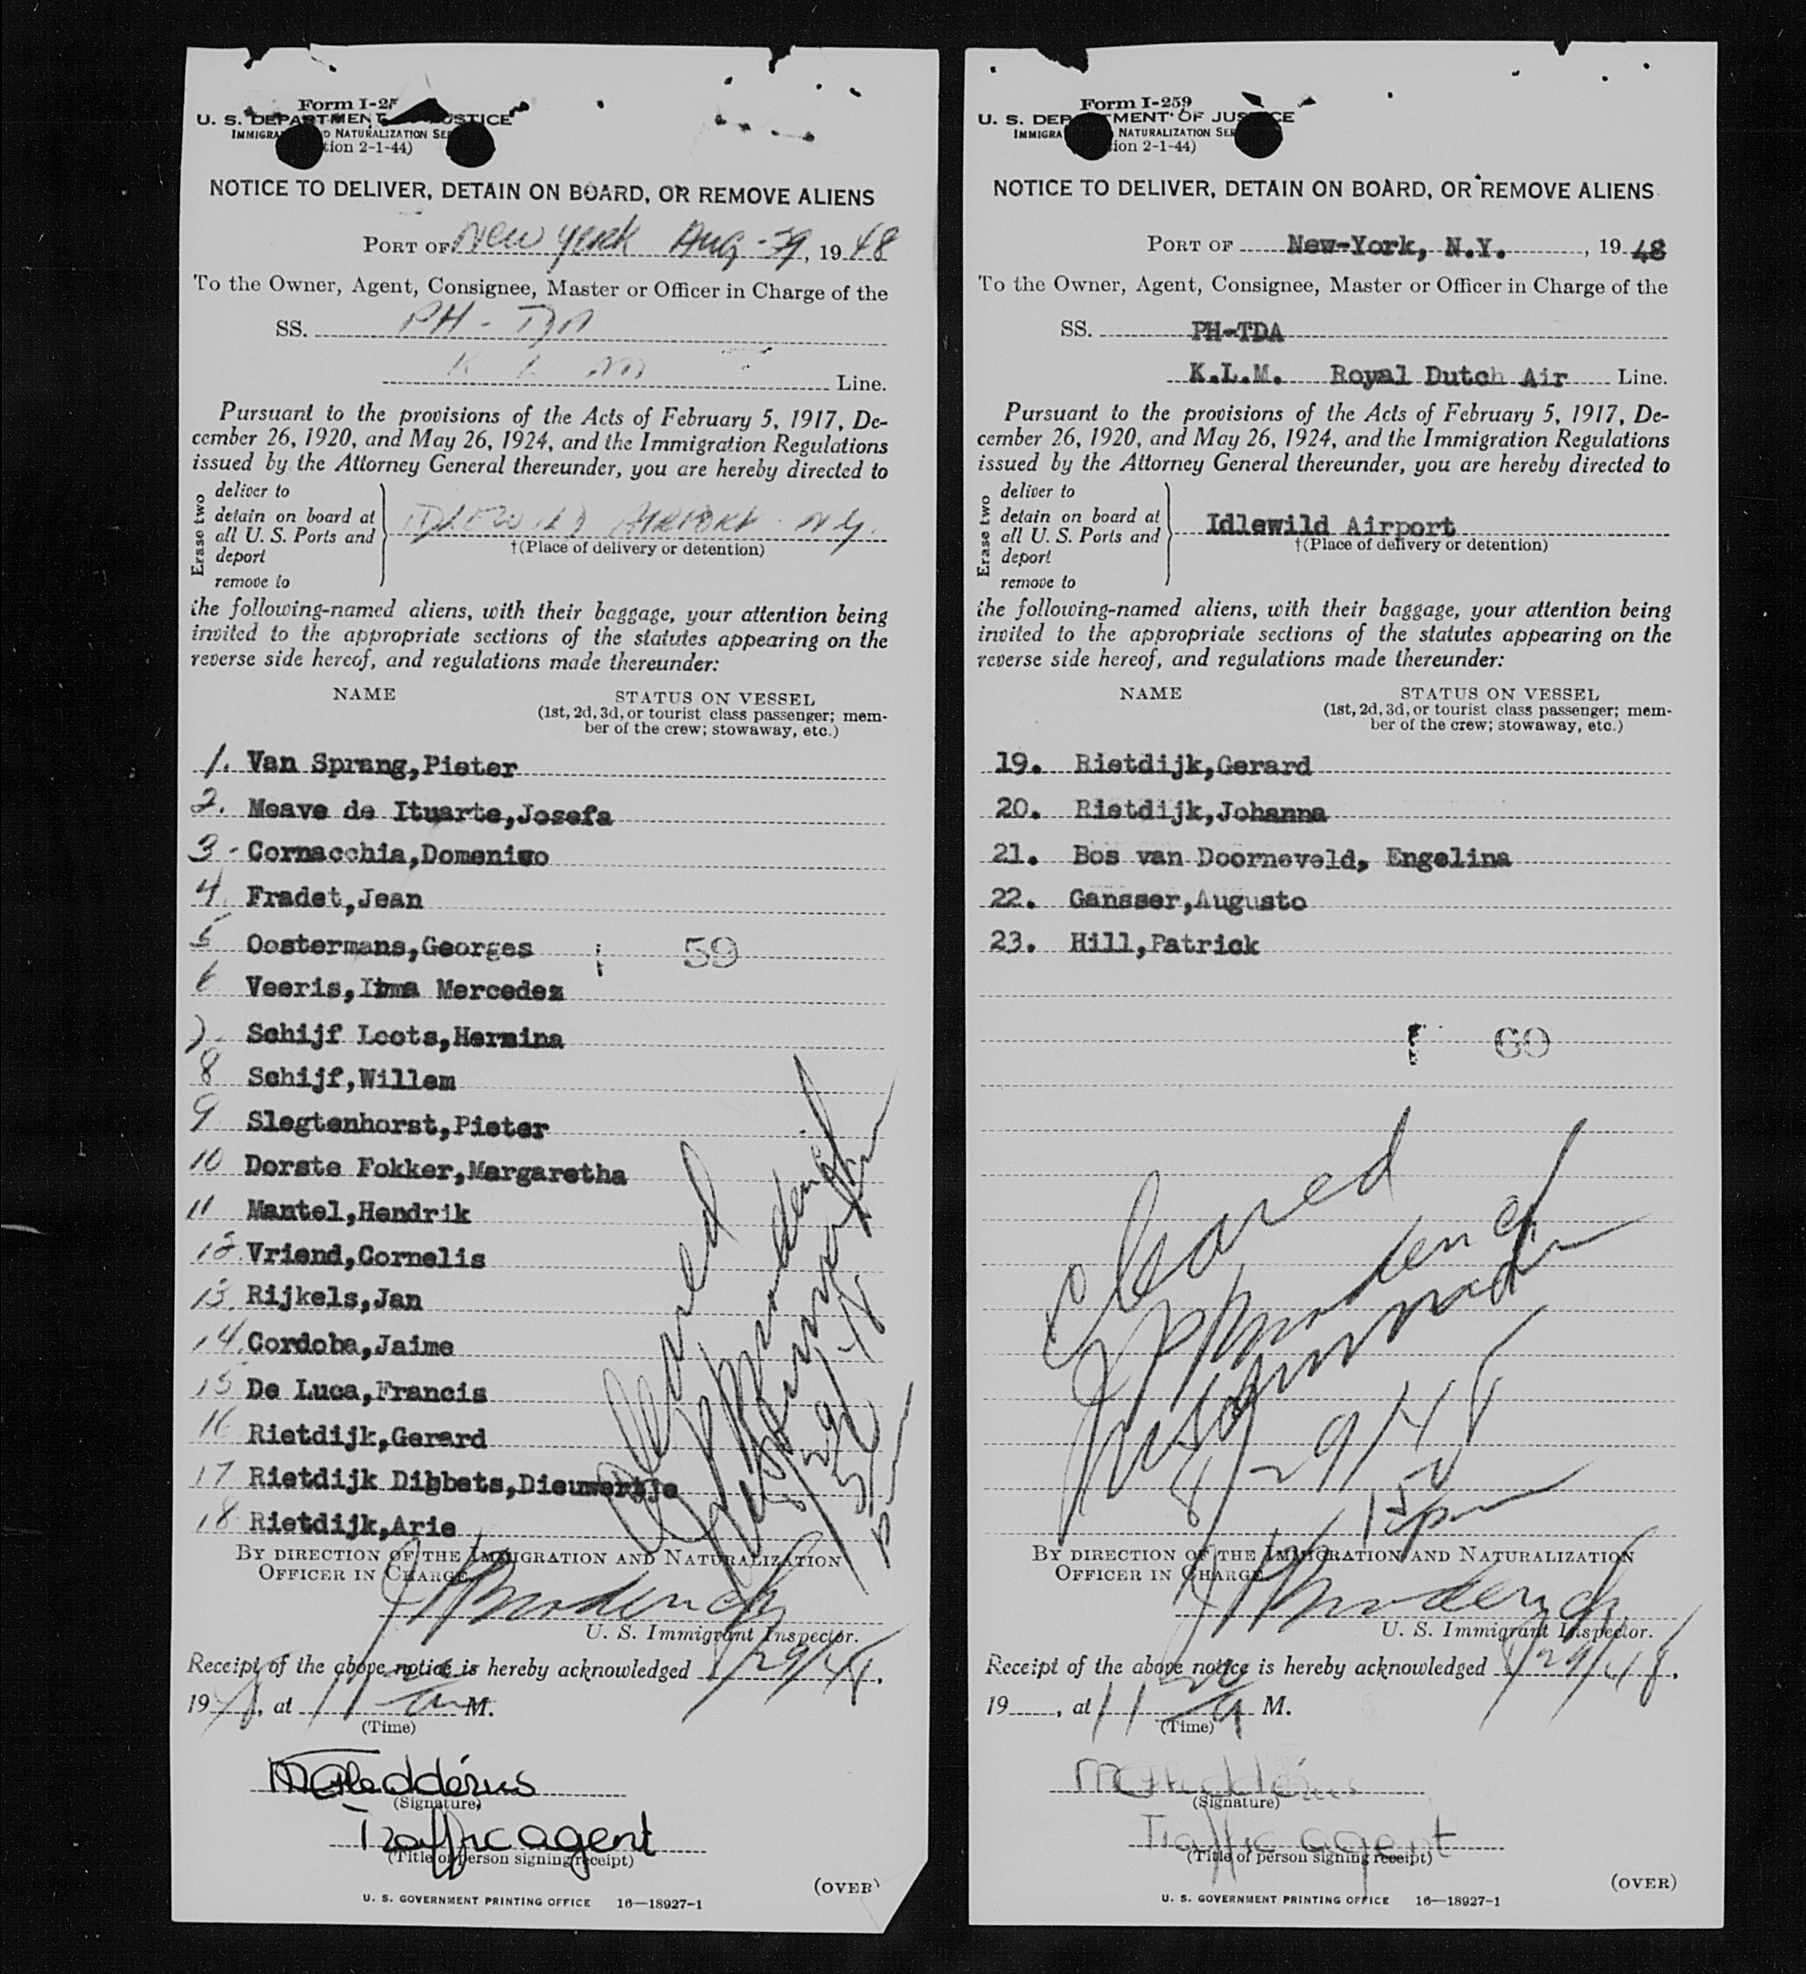 Form I-25
U. S. DEPARTMENT JUSTICE
IMMIGRA D NATURALIZATION SE
tion 2-1-44)
NOTICE TO DELIVER, DETAIN ON BOARD, OR REMOVE ALIENS
PORT OF New York Aug-29, 1948
To the Owner, Agent, Consignee, Master or Officer in Charge of the
SS. PH-TDA
K L M Line.
Pursuant to the provisions of the Acts of February 5, 1917, De-
cember 26, 1920, and May 26, 1924, and the Immigration Regulations
issued by the Attorney General thereunder, you are hereby directed to
Erase two
deliver to
detain on board at
all U. S. Ports and
deport
remove to
IDLEWILD AIRPORT N.Y.
†(Place of delivery or detention)
the following-named aliens, with their baggage, your attention being
invited to the appropriate sections of the statutes appearing on the
reverse side hereof, and regulations made thereunder:
NAME STATUS ON VESSEL
(1st, 2d, 3d, or tourist class passenger; mem-
ber of the crew; stowaway, etc.)
1. Van Sprang,Pieter
2. Meave de Ituarte,Josefa
3- Cornacchia,Domenico
4. Fradet,Jean
5 Oostermans,Georges 59
6 Veeris,Irma Mercedez
7. Schijf Loots,Hermina
8 Schijf,Willem
9 Slegtenhorst,Pieter
10 Dorste Fokker,Margaretha
11 Mantel,Hendrik
12. Vriend,Cornelis
13. Rijkels,Jan
14. Cordoba,Jaime
15 De Luca,Francis
16 Rietdijk,Gerard
17 Rietdijk Dibbets,Dieuwertje
18 Rietdijk,Arie
Cleared
8/29/48
BY DIRECTION OF THE IMMIGRATION AND NATURALIZATION
OFFICER IN CHARGE.
U. S. Immigrant Inspector.
Receipt of the above notice is hereby acknowledged 8/29/48,
1948, at 11 20 a M.
(Time)
(Signature)
Traffic agent
(Title of person signing receipt)
(OVER)
U. S. GOVERNMENT PRINTING OFFICE 16—18927-1
Form I-259
U. S. DEP TMENT OF JUS CE
IMMIGRA NATURALIZATION SER
ion 2-1-44)
NOTICE TO DELIVER, DETAIN ON BOARD, OR REMOVE ALIENS
PORT OF New-York, N.Y., 1948
To the Owner, Agent, Consignee, Master or Officer in Charge of the
SS. PH-TDA
K.L.M. Royal Dutch Air Line.
Pursuant to the provisions of the Acts of February 5, 1917, De-
cember 26, 1920, and May 26, 1924, and the Immigration Regulations
issued by the Attorney General thereunder, you are hereby directed to
Erase two
deliver to
detain on board at
all U. S. Ports and
deport
remove to
Idlewild Airport
†(Place of delivery or detention)
the following-named aliens, with their baggage, your attention being
invited to the appropriate sections of the statutes appearing on the
reverse side hereof, and regulations made thereunder:
NAME STATUS ON VESSEL
(1st, 2d, 3d, or tourist class passenger; mem-
ber of the crew; stowaway, etc.)
19. Rietdijk,Gerard
20. Rietdijk,Johanna
21. Bos van Doorneveld, Engelina
22. Gansser,Augusto
23. Hill,Patrick
60
Cleared
8/29/48
BY DIRECTION OF THE IMMIGRATION AND NATURALIZATION
OFFICER IN CHARGE.
U. S. Immigrant Inspector.
Receipt of the above notice is hereby acknowledged 8/29/48,
19, at 11 20 a M.
(Time)
(Signature)
Traffic agent
(Title of person signing receipt)
(OVER)
U. S. GOVERNMENT PRINTING OFFICE 16—18927-1